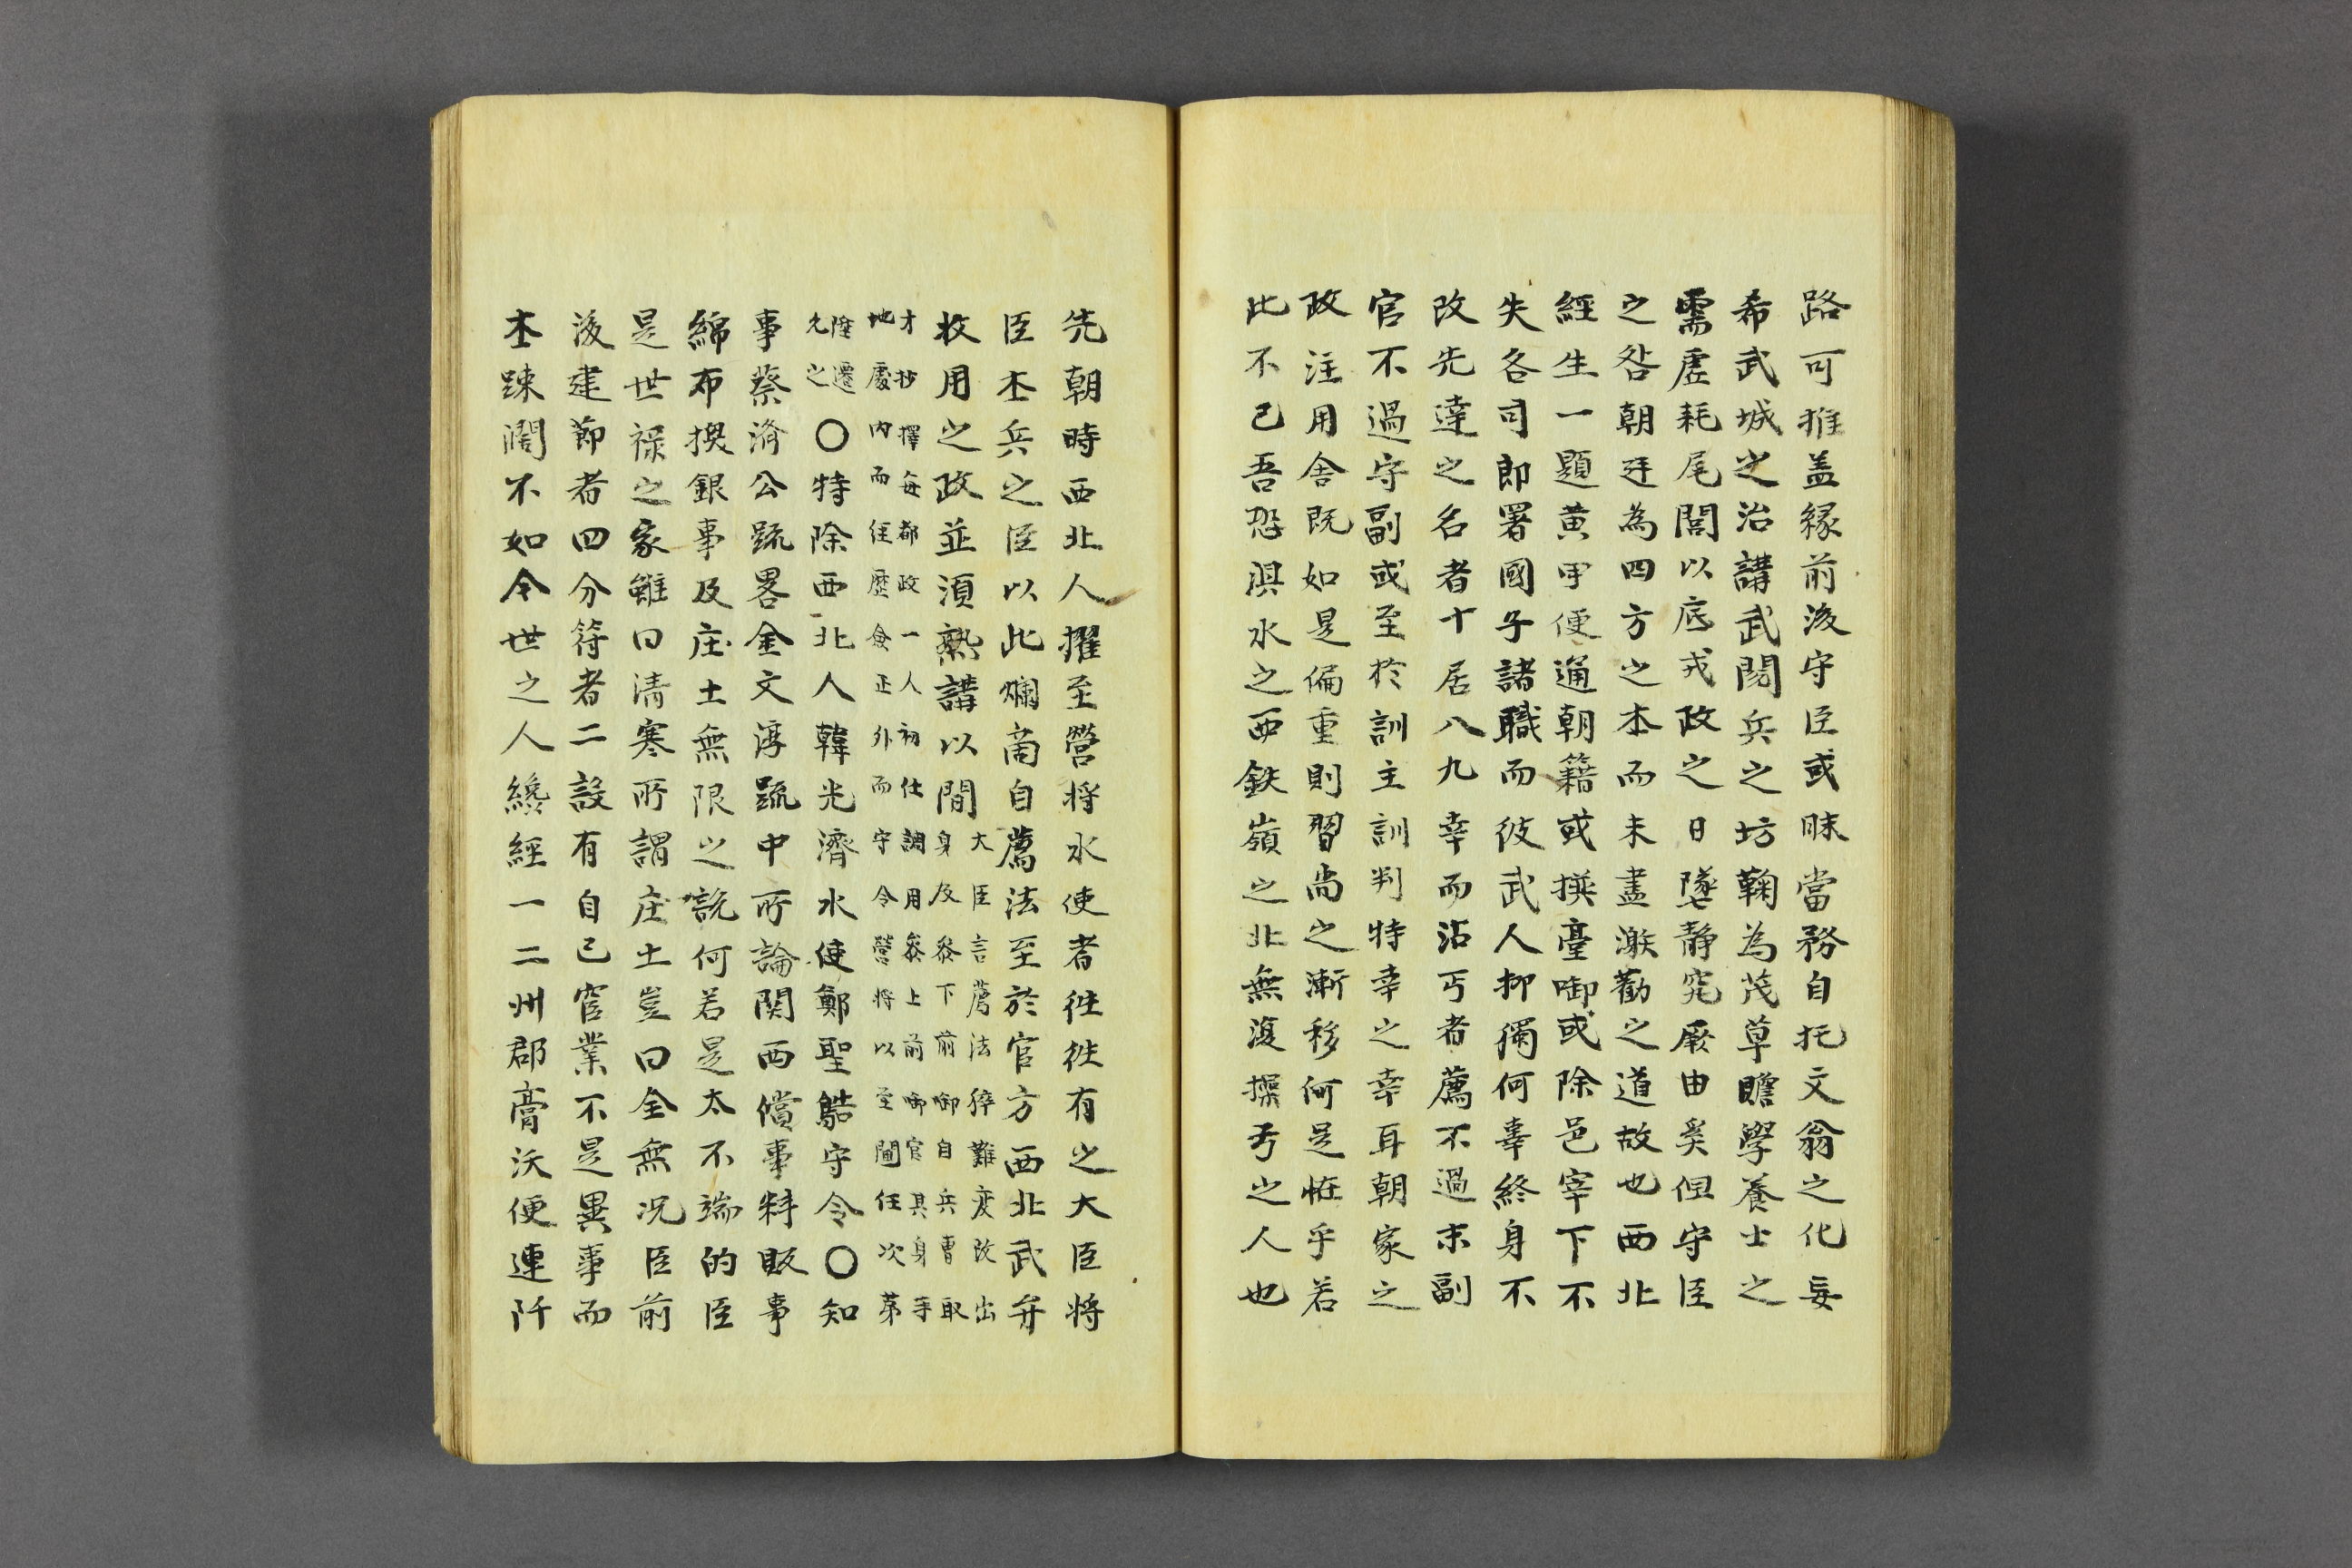 路可推盖緣前後守臣或昧當務自托文翁之化妄
希武城之治講武閱兵之坊鞠為茂草瞻學養士之
需虛耗尾閭以底戎政之日墜静究厥由奚但守臣
之咎朝廷為四方之本而未盡激勸之道故也西北
經生一題黄甲便通朝籍或擬臺啣或除邑宰下不
失各司郎署國子諸職而彼武人抑獨何辜終身不
改先達之名者十居八九幸而沾丐者薦不過末副
官不過守副或至於訓主訓判特幸之幸耳朝家之
政注用舍既如是偏重則習尚之漸移何足恠乎若
此不已吾恐浿水之西鉄嶺之北無復操弓之人也
先朝時西北人擢至營将水使者徃徃有之大臣将
臣本兵之臣以此爛啇自薦法至於官方西北武弁
收用之政並湏熟講以聞大臣言薦法猝難变改出
身及叅下前啣自兵曹取
才抄擇每都政一人初仕調用叅上前啣官其身手
地處内而任歴僉正外而守令營将以至閫任次第
陞遷
允之○特除西北人韓光濟水使鄭聖鵠守令○知
事蔡濟公䟽畧金文淳䟽中所論関西償事料販事
綿布換銀事及庄土無限之説何若是太不端的臣
是世祿之家雖曰清寒所謂庄土豈曰全無况臣前
後建節者四分符者二設有自己官業不是異事而
本踈濶不如今世之人纔經一二州郡膏沃便連阡